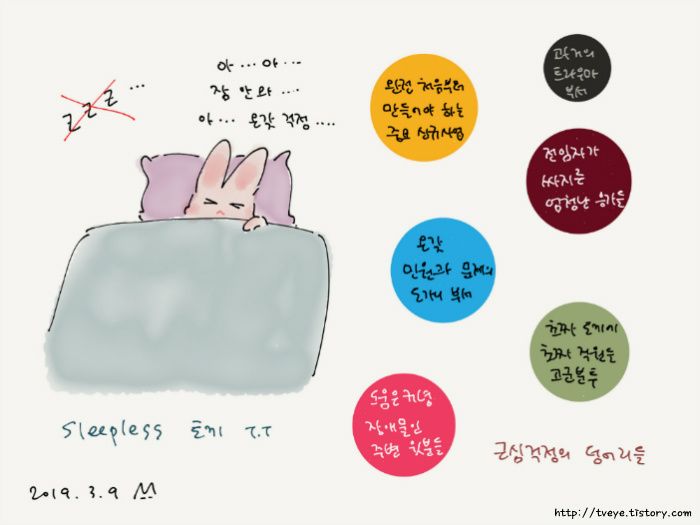 zzz ...
아 ... 아 ...
잠 안와 ....
아 ... 온갖 걱정 ....
완전 처음부터
만들어야 하는
주요 신규사업
과거의
트라우마
부서
전임자가
싸지른
엄청난 응가들
온갖
민원과 문제의
도가니 부서
초짜 토끼에
초짜 직원들
고군분투
도움은커녕
장애물인
주변 윗분들
Sleepless 토끼 T.T
근심걱정의 덩어리들
2019. 3. 9
http://tveye.tistory.com